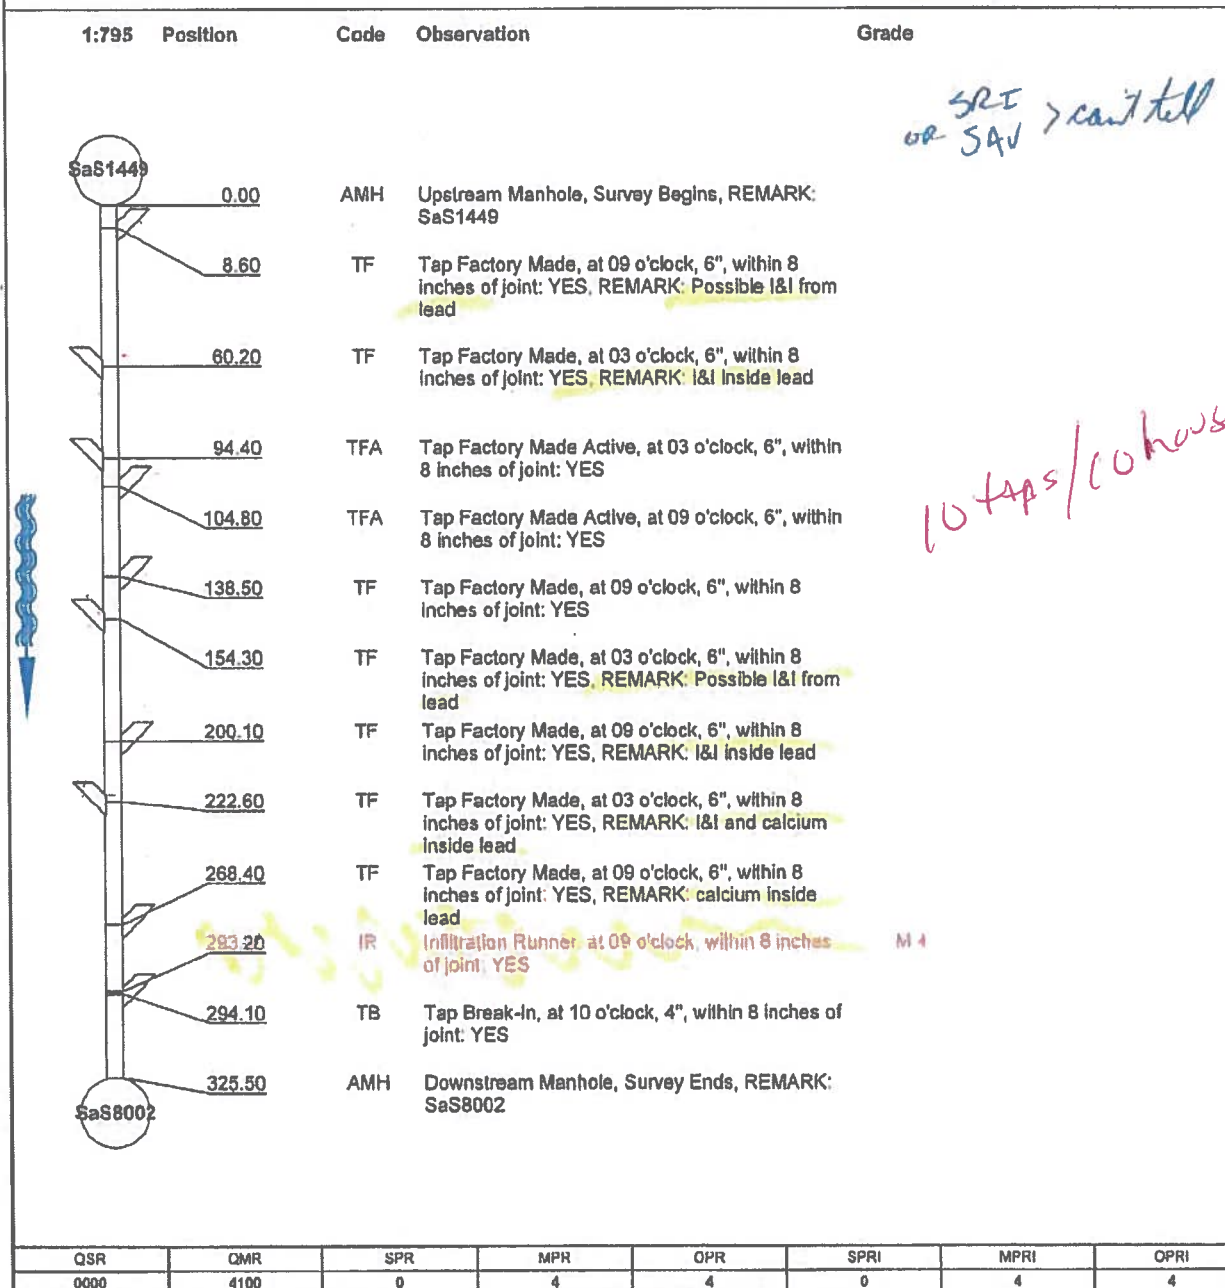 1:795 Position Code Observation Grade
SRI
OR SAV > can't tell
SaS1449
0.00 AMH Upstream Manhole, Survey Begins, REMARK:
SaS1449
8.60 TF Tap Factory Made, at 09 o'clock, 6", within 8
inches of joint: YES, REMARK: Possible I&I from
lead
60.20 TF Tap Factory Made, at 03 o'clock, 6", within 8
inches of joint: YES, REMARK: I&I inside lead
94.40 TFA Tap Factory Made Active, at 03 o'clock, 6", within
8 inches of joint: YES
10 taps/10 hous
104.80 TFA Tap Factory Made Active, at 09 o'clock, 6", within
8 inches of joint: YES
138.50 TF Tap Factory Made, at 09 o'clock, 6", within 8
inches of joint: YES
154.30 TF Tap Factory Made, at 03 o'clock, 6", within 8
inches of joint: YES, REMARK: Possible I&I from
lead
200.10 TF Tap Factory Made, at 09 o'clock, 6", within 8
inches of joint: YES, REMARK: I&I inside lead
222.60 TF Tap Factory Made, at 03 o'clock, 6", within 8
inches of joint: YES, REMARK: I&I and calcium
inside lead
268.40 TF Tap Factory Made, at 09 o'clock, 6", within 8
inches of joint: YES, REMARK: calcium inside
lead
293.20 IR Infiltration Runner, at 09 o'clock, within 8 inches M 4
of joint: YES
294.10 TB Tap Break-In, at 10 o'clock, 4", within 8 inches of
joint: YES
325.50 AMH Downstream Manhole, Survey Ends, REMARK:
SaS8002
SaS8002
QSR QMR SPR MPR OPR SPRI MPRI OPRI
0000 4100 0 4 4 0 4 4